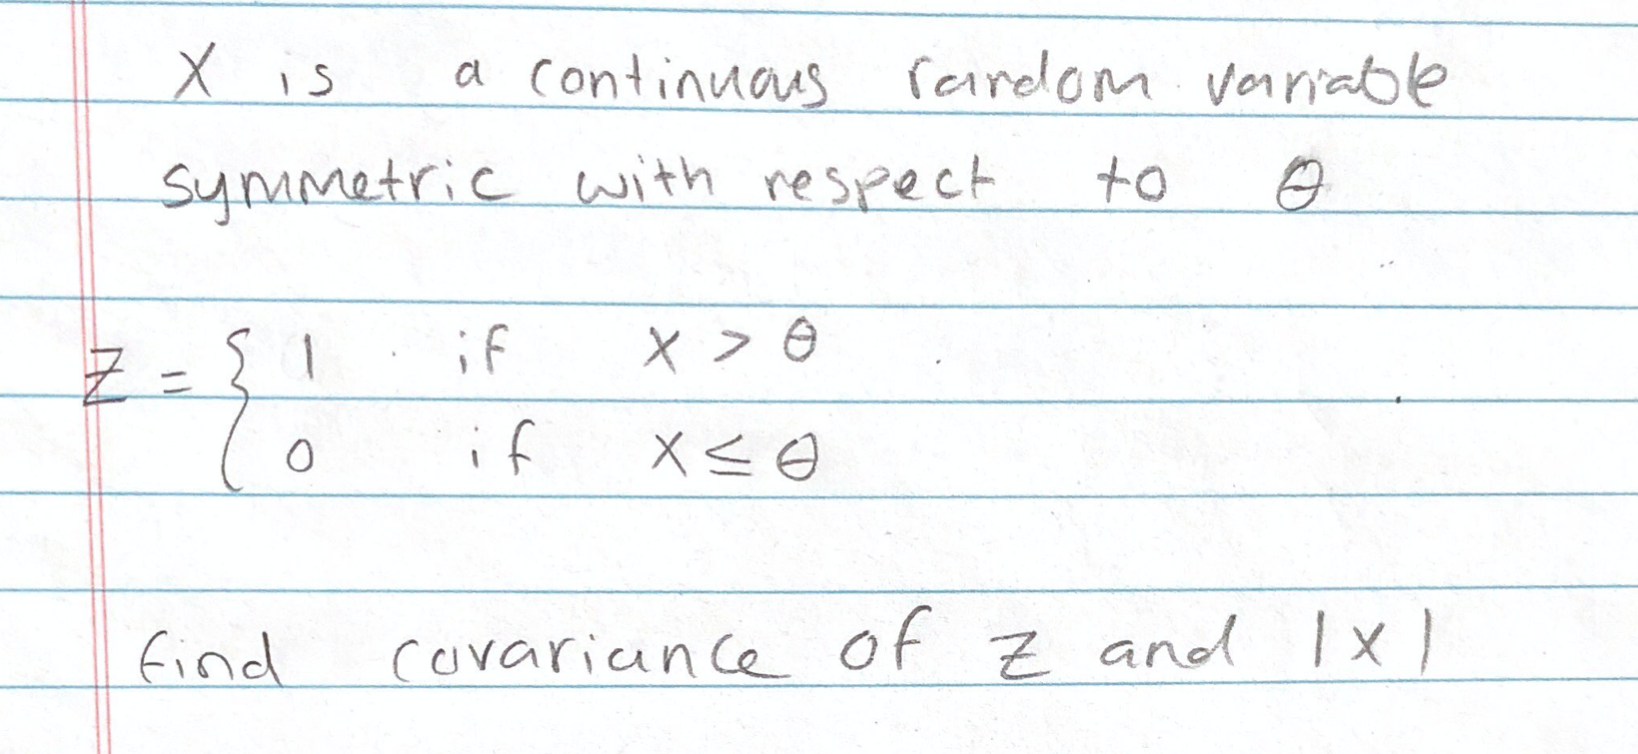 X is a continuous random variable
symmetric with respect to θ
Z = { 1 if X > θ
0 if X ≤ θ
find covariance of Z and |X|